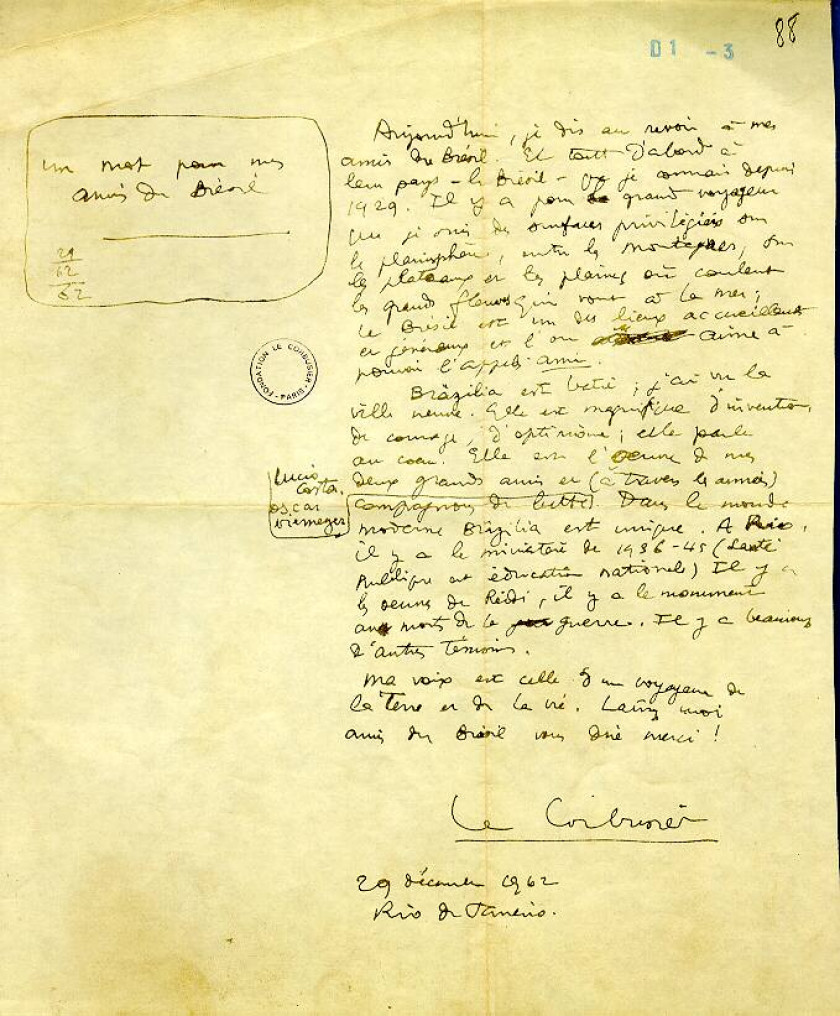 88
D1 -3
un mot pour mes
amis du Brésil
29
62
FONDATION LE CORBUSIER - PARIS
Aujourd'hui, je dis au revoir à mes
amis du Brésil. Et tout d'abord à
leur pays - le Brésil - que je connais depuis
1929. Il y a pour le grand voyageur
que je suis des surfaces privilégiées sur
le planisphère, entre les montagnes, sur
les plateaux et les plaines où coulent
les grands fleuves qui vont à la mer ;
le Brésil est un des lieux accueillants
et généreux et l'on aime à
pouvoir l'appeler ami.
Brazilia est bâtie ; j'ai vu la
ville neuve. Elle est magnifique d'invention,
de courage, d'optimisme ; elle parle
au coeur. Elle est l'oeuvre de mes
deux grands amis et (à travers les années)
compagnons de lutte
Lucio
Costa.
oscar
niemeyer
Dans le monde
moderne Brazilia est unique. A Rio,
il y a le ministère de 1936-45 (Santé
Publique et éducation nationale) Il y a
les oeuvres de Reidi, il y a le monument
aux morts de la guerre. Il y a beaucoup
d'autres témoins.
Ma voix est celle d'un voyageur de
la terre et de la vie. Laissez moi
amis du Brésil vous dire merci !
Le Corbusier
29 décembre 1962
Rio de Janeiro.